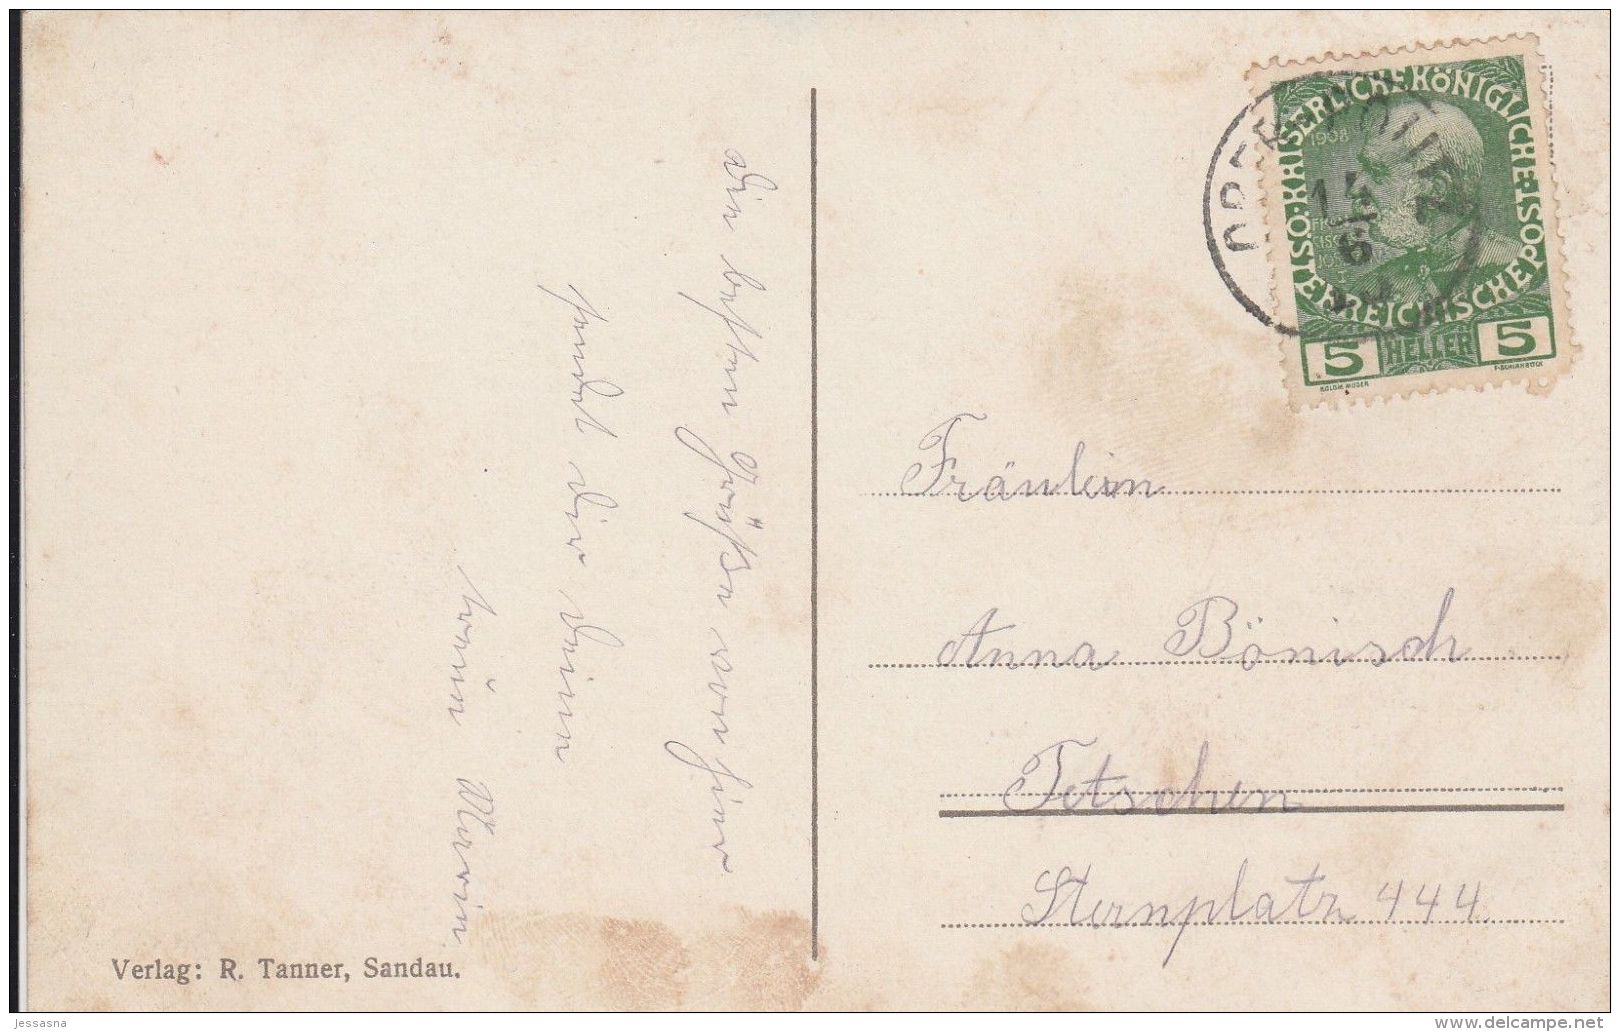 Die besten Grüße von hier
sendet dir deine
Freun Marie
KAISERLICHE KÖNIGLICHE
ÖSTERREICHISCHE POST
1908
5 HELLER 5
14
6
Fräulein
Anna Bönisch
Tetschen
Sternplatz 444.
Verlag: R. Tanner, Sandau.
jessasna
www.delcampe.net